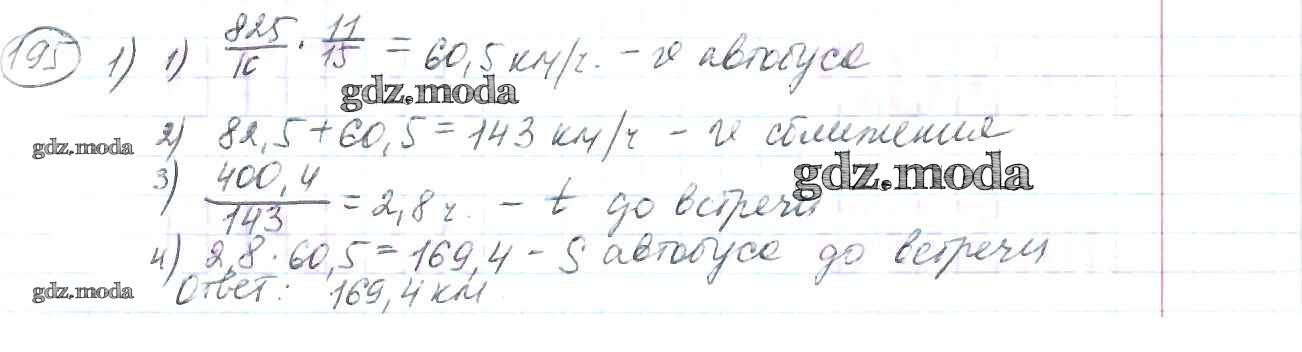 195 1) 1) 825/10 · 11/15 = 60,5 км/ч. – v автобуса
gdz.moda
2) 82,5 + 60,5 = 143 км/ч – v сближения
gdz.moda
gdz.moda
3) 400,4/143 = 2,8 ч. – t до встречи
4) 2,8 · 60,5 = 169,4 – S автобуса до встречи
gdz.moda
Ответ: 169,4 км